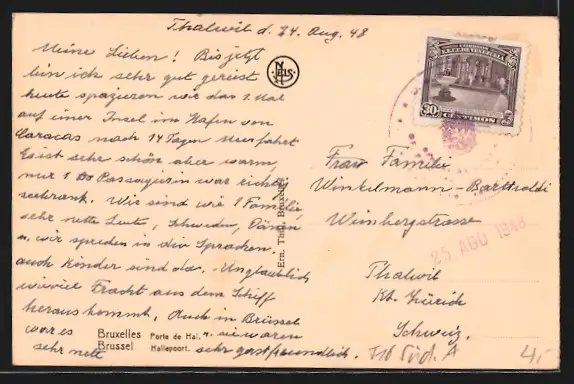 Thalwil d. 24. Aug. 48
Meine Lieben! Bis jetzt
bin ich sehr gut gereist
heute spazieren wir das 1. Mal
auf einer Insel im Hafen von
Caracas nach 14 Tagen Meerfahrt
Es ist sehr schön aber warm,
nur 1 Passagierin war richtig
seekrank. Wir sind wie 1 Familie,
sehr nette Leute, Schweden, Dänen
u. wir in div Sprachen.
auch Kinder sind da. Unglaublich
wieviel Fracht aus dem Schiff
heraus kommt. Auch in Brüssel
war es
u. sie waren
sehr nett
sehr gastfreundlich.
Bruxelles Porte de Hal.
Brussel Hallepoort.
NELS
Ern. Thill, Bruxelles
CORREOS
EE.UU. DE VENEZUELA
30
CENTIMOS
Frau Familie
Winkelmann-Bartholdi
Weinbergstrasse
25 AGO 1948
Thalwil
Kt. Zürich
Schweiz.
4,-